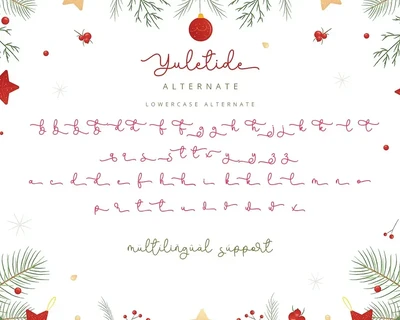 Yuletide
ALTERNATE
LOWERCASE ALTERNATE
b b b b d d f f g g h h j k k l t
s s s t t v y y z z
a c d d e f h h i k k l l m n o
p r t t u v v v x
multilingual support